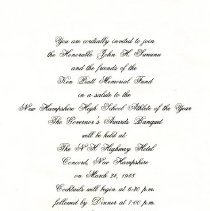 You are cordially invited to join
the Honorable John H. Sununu
and the friends of the
Ken Batt Memorial Fund
in a salute to the
New Hampshire High School Athlete of the Year
The Governor's Awards Banquet
will be held at
The N H Highway Hotel
Concord, New Hampshire
on March 24, 1985
Cocktails will begin at 6:30 p.m.
followed by Dinner at 7:00 p.m.